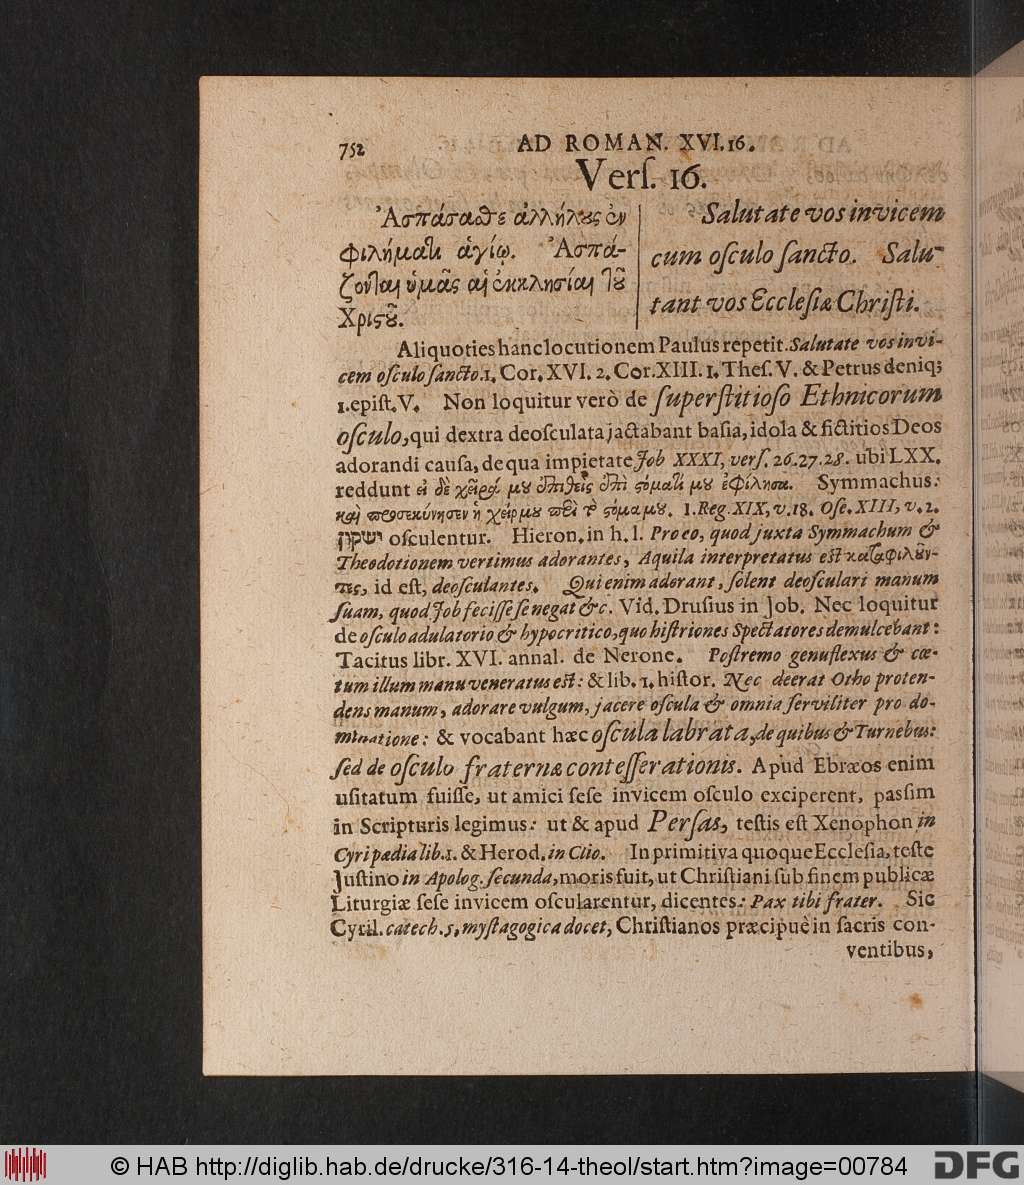 752
AD ROMAN. XVI. 16.
Verſ. 16.
Ἀσπάσαθε ἀλλήλους ἐν
φιλήματι ἁγίῳ. Ἀσπά-
ζονται ὑμᾶς αἱ ἐκκλησίαι τοῦ
Χριστοῦ.
Salutate vos invicem
cum oſculo ſancto. Salu-
tant vos Eccleſiæ Chriſti.
Aliquoties hanc locutionem Paulus repetit. Salutate vos invi-
cem oſculo ſancto. 1. Cor. XVI. 2. Cor. XIII. 1. Theſ. V. & Petrus deniq;
1. epiſt. V. Non loquitur verò de ſuperſtitioſo Ethnicorum
oſculo, qui dextra deoſculata jactabant baſia, idola & fictitios Deos
adorandi cauſa, de qua impietate Job XXXI, verſ. 26. 27. 28. ubi LXX.
reddunt εἰ δὲ χεῖρά μου ἐπιθεὶς ἐπὶ στόματί μου ἐφίλησα. Symmachus:
καὶ προσεκύνησεν ἡ χείρ μου περὶ τὸ στόμα μου. 1. Reg. XIX, v. 18. Oſe. XIII, v. 2.
ישקון oſculentur. Hieron. in h. l. Pro eo, quod juxta Symmachum &
Theodotionem vertimus adorantes, Aquila interpretatus eſt καταφιλοῦν-
τες, id eſt, deoſculantes. Qui enim adorant, ſolent deoſculari manum
ſuam, quod Job feciſſe ſe negat &c. Vid. Druſius in Job. Nec loquitur
de oſculo adulatorio & hypocritico, quo hiſtriones Spectatores demulcebant:
Tacitus libr. XVI. annal. de Nerone. Poſtremo genuflexus & cœ-
tum illum manu veneratus eſt: & lib. 1. hiſtor. Nec deerat Otho proten-
dens manum, adorare vulgum, jacere oſcula & omnia ſerviliter pro do-
minatione: & vocabant hæc oſcula labrata, de quibus & Turnebus:
ſed de oſculo fraternæ conteſſerationis. Apud Ebræos enim
uſitatum fuiſſe, ut amici ſeſe invicem oſculo exciperent, paſſim
in Scripturis legimus: ut & apud Perſas, teſtis eſt Xenophon in
Cyripædia lib. 1. & Herod. in Clio. In primitiva quoque Eccleſia, teſte
Juſtino in Apolog. ſecunda, moris fuit, ut Chriſtiani ſub finem publicæ
Liturgiæ ſeſe invicem oſcularentur, dicentes: Pax tibi frater. Sic
Cyril. catech. 5, myſtagogica docet, Chriſtianos præcipuè in ſacris con-
ventibus,
© HAB http://diglib.hab.de/drucke/316-14-theol/start.htm?image=00784
DFG